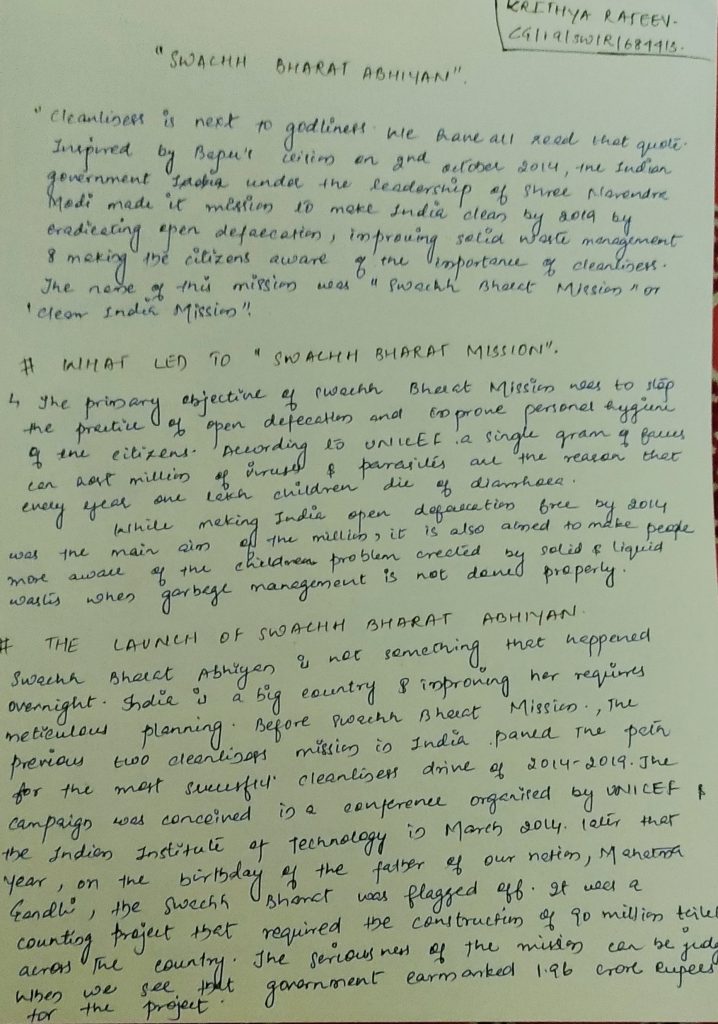 KRITHYA RAJEEV.
CG/19/SW/R/684413.
"SWACHH BHARAT ABHIYAN".
"Cleanliness is next to godliness. We have all read that quote.
Inspired by Bapu's vision on 2nd october 2014, the Indian
government under the leadership of Shree Narendra
Modi made it mission to make India clean by 2019 by
eradicating open defaecation, improving solid waste management
& making the citizens aware of the importance of cleanliness.
The name of this mission was "Swachh Bharat Mission" or
'Clean India Mission".
# WHAT LED TO "SWACHH BHARAT MISSION".
↳ The primary objective of swachh Bharat Mission was to stop
the practice of open defecation and improve personal hygiene
of the citizens. According to UNICEF a single gram of faeces
can million of viruses & parasites are the reason that
every year one lakh children die of diarrhoea.
While making India open defaecation free by 2014
was the main aim of the million, it is also aimed to make people
more aware of the problem created by solid & liquid
wastes when garbage management is not done properly.
# THE LAUNCH OF SWACHH BHARAT ABHIYAN.
Swachh Bharat Abhiyan is not something that happened
overnight. India is a big country & improving her requires
meticulous planning. Before Swachh Bharat Mission, The
previous two cleanliness mission in India paved The path
for the most successful cleanliness drive of 2014-2019. The
campaign was conceived in a conference organised by UNICEF &
the Indian Institute of Technology in March 2014. later that
year, on the birthday of the father of our nation, Mahatma
Gandhi, the Swachh Bharat was flagged off. It was a
counting project that required the construction of 90 million toilet
across The country. The seriousness of the mission can be judg
When we see that government earmarked 1.96 crore rupees
for the project.